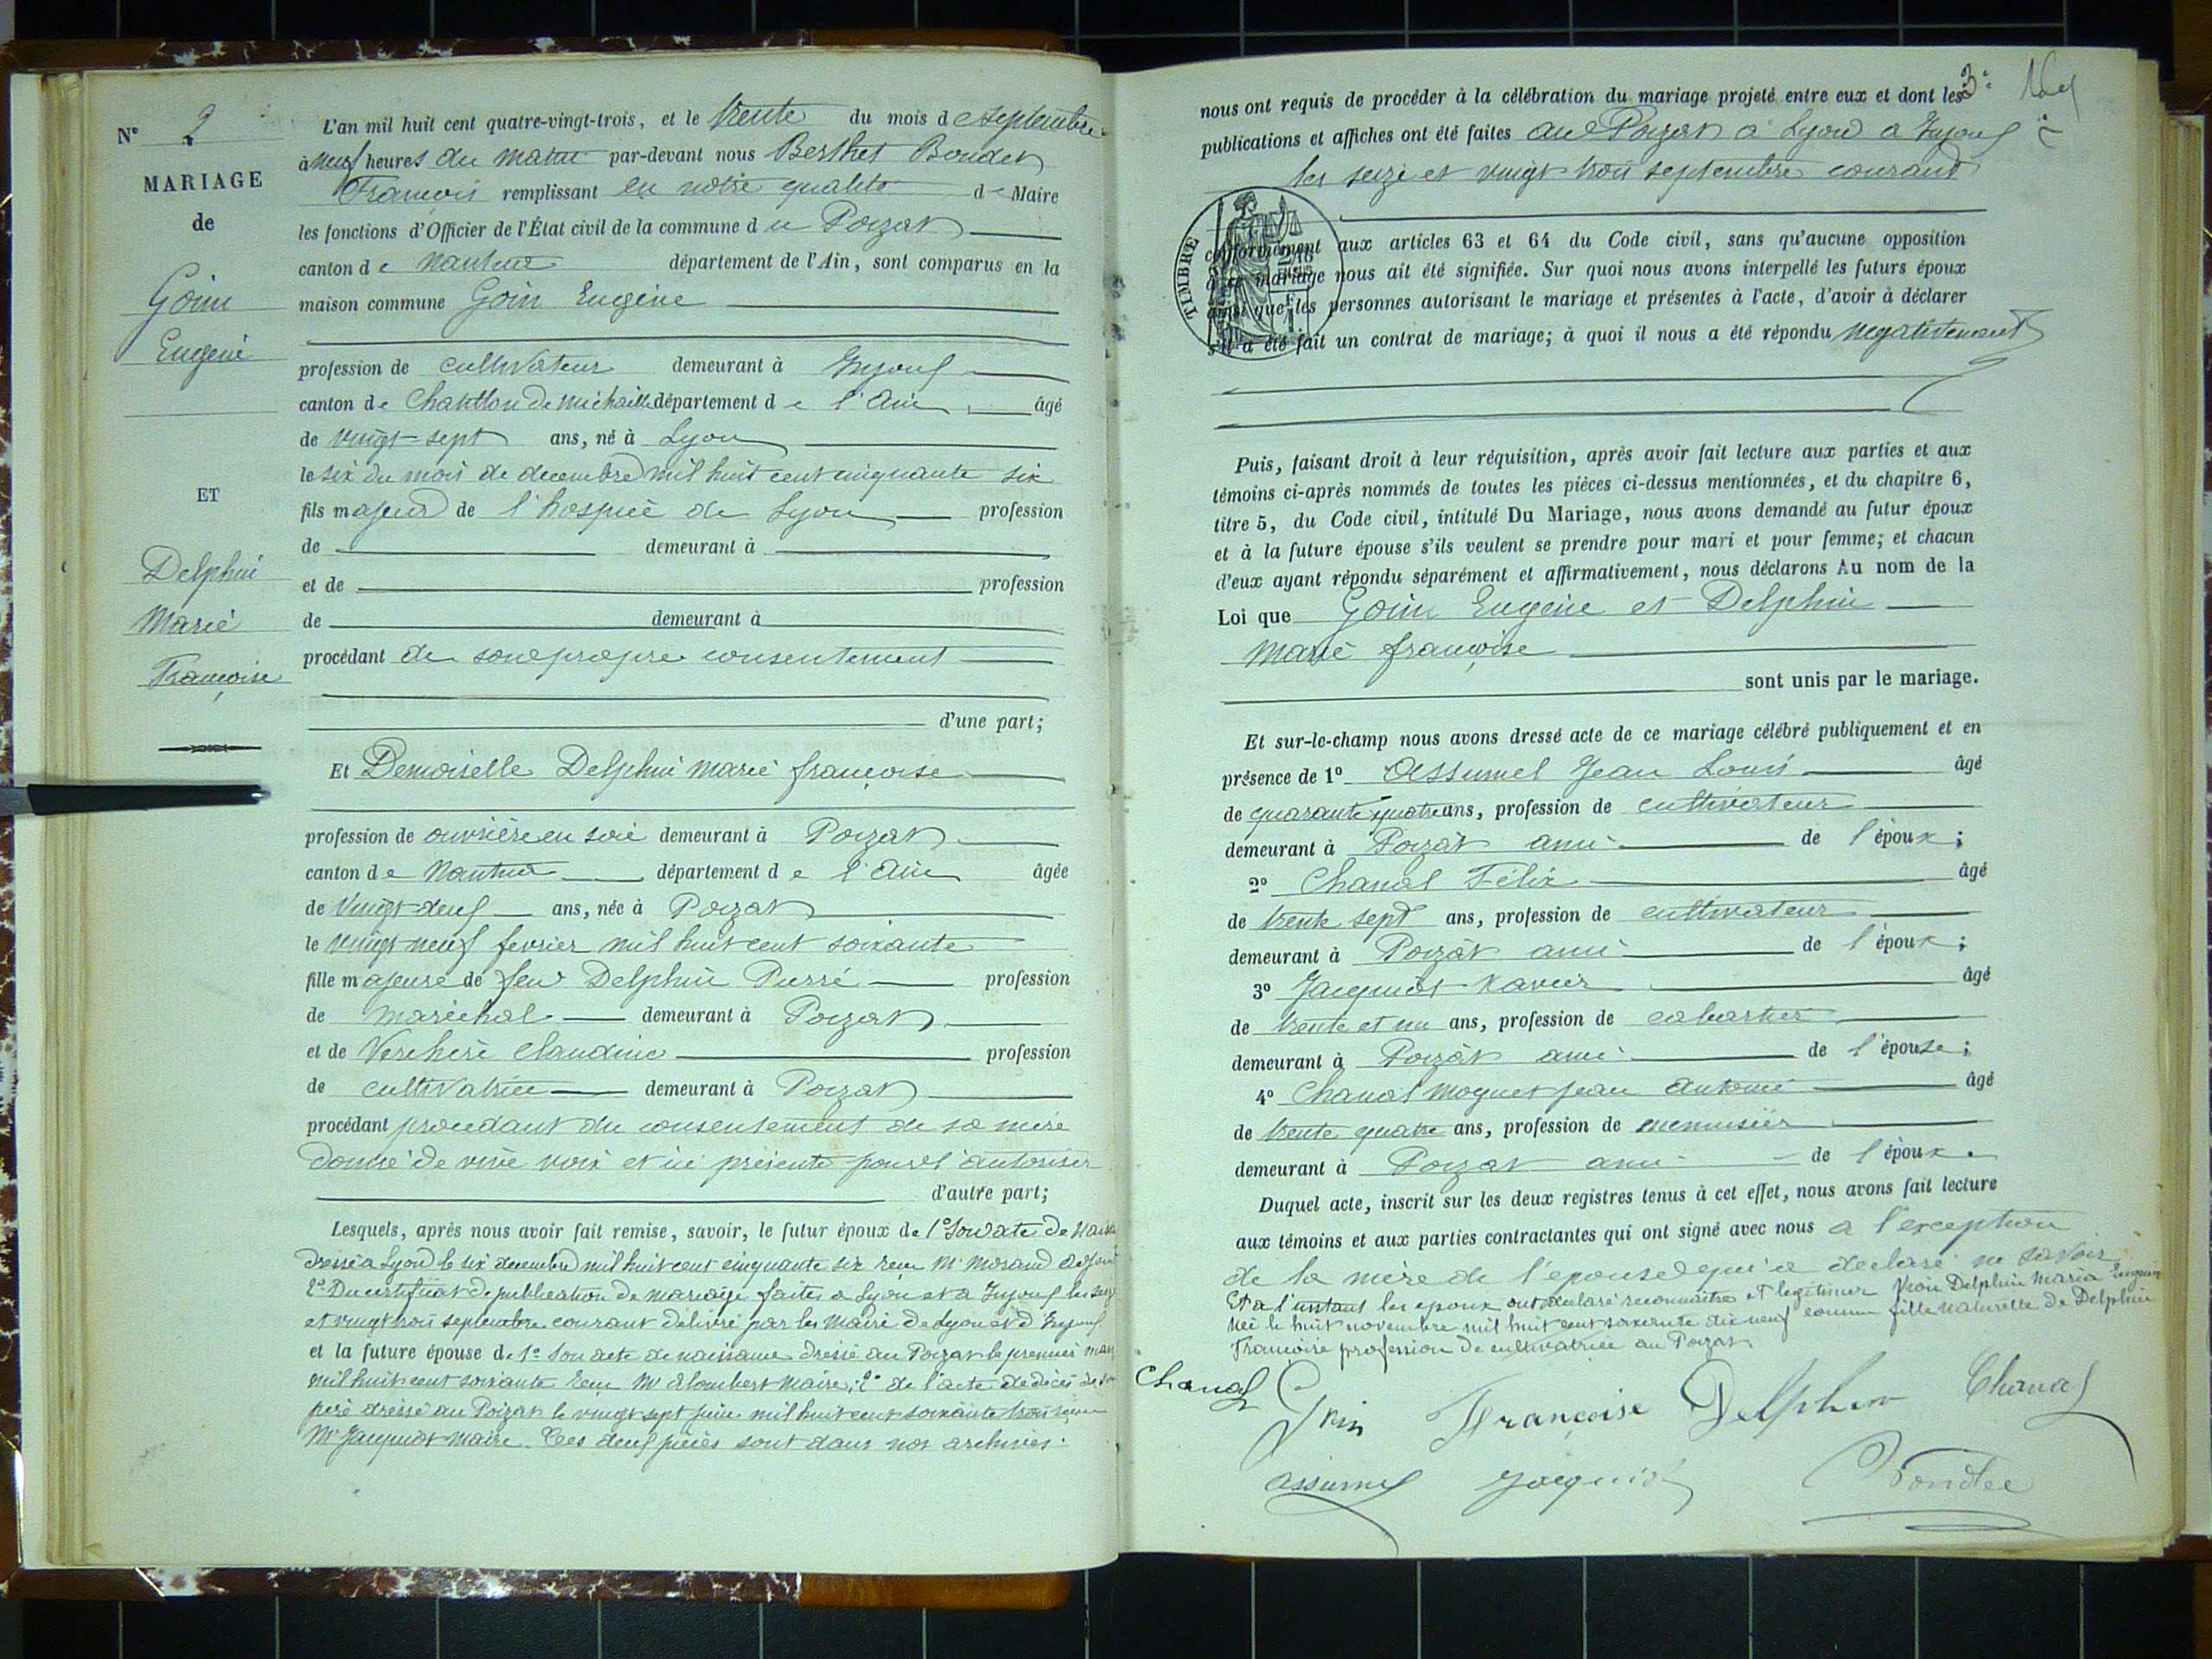 N° 2
MARIAGE
de
Goin
Eugène
ET
Delphin
Marie
Françoise
L'an mil huit cent quatre-vingt-trois, et le trente du mois de septembre
à neuf heures du matin par-devant nous Berthet Bondet
François remplissant en notre qualité de Maire
les fonctions d'Officier de l'État civil de la commune du Poizat
canton de Nantua département de l'Ain, sont comparus en la
maison commune Goin Eugène
profession de cultivateur demeurant à Injoux
canton de Chatillon de Michaille département de l'Ain âgé
de vingt-sept ans, né à Lyon
le six du mois de decembre mil huit cent cinquante six
fils majeur de l'hospice de Lyon profession
de demeurant à
et de profession
de demeurant à
procédant de son propre consentement
d'une part;
Et Demoiselle Delphin Marie françoise
profession de ouvrière en soie demeurant à Poizat
canton de Nantua département de l'Ain âgée
de vingt-deux ans, née à Poizat
le vingt-neuf fevrier mil huit cent soixante
fille majeure de feu Delphin Pierre profession
de maréchal demeurant à Poizat
et de Verchere Claudine profession
de cultivatrice demeurant à Poizat
procédant procedant du consentement de sa mère
donné de vive voix et ici présente pour l'autoriser
d'autre part;
Lesquels, après nous avoir fait remise, savoir, le futur époux de 1° Son acte de
dressé à Lyon le six decembre mil huit cent cinquante six reçu Mr Morand
2° Du certificat de publication de mariage faites à Lyon et à Injoux les seize
et vingt trois septembre courant délivré par les Maires de Lyon et d'Injoux
et la future épouse de 1° Son acte de naissance dressé au Poizat le premier mars
mil huit cent soixante reçu Mr Alombert Maire, 2° de l'acte de décès de son
père dressé au Poizat le vingt sept juin mil huit cent soixante trois reçu
Mr Jacquiot maire. Ces deux pièces sont dans nos archives.
3e
nous ont requis de procéder à la célébration du mariage projeté entre eux et dont les
publications et affiches ont été faites au Poizat à Lyon à Injoux
les seize et vingt trois septembre courant
TIMBRE
conformément aux articles 63 et 64 du Code civil, sans qu'aucune opposition
à ce mariage nous ait été signifiée. Sur quoi nous avons interpellé les futurs époux
ainsi que les personnes autorisant le mariage et présentes à l'acte, d'avoir à déclarer
s'il a été fait un contrat de mariage; à quoi il nous a été répondu negativement
Puis, faisant droit à leur réquisition, après avoir fait lecture aux parties et aux
témoins ci-après nommés de toutes les pièces ci-dessus mentionnées, et du chapitre 6,
titre 5, du Code civil, intitulé Du Mariage, nous avons demandé au futur époux
et à la future épouse s'ils veulent se prendre pour mari et pour femme; et chacun
d'eux ayant répondu séparément et affirmativement, nous déclarons Au nom de la
Loi que Goin Eugène et Delphin
Marie françoise
sont unis par le mariage.
Et sur-le-champ nous avons dressé acte de ce mariage célébré publiquement et en
présence de 1° Assumel Jean Louis âgé
de quarante quatre ans, profession de cultivateur
demeurant à Poizat ami de l'époux;
2° Chanal Félix âgé
de trente sept ans, profession de cultivateur
demeurant à Poizat ami de l'époux;
3° Jacquiot Xavier âgé
de trente et un ans, profession de cabartier
demeurant à Poizat ami de l'épouse;
4° Chanal Moquet jean Antoine âgé
de trente quatre ans, profession de menuisier
demeurant à Poizat ami de l'époux.
Duquel acte, inscrit sur les deux registres tenus à cet effet, nous avons fait lecture
aux témoins et aux parties contractantes qui ont signé avec nous à l'exception
de la mère de l'épouse qui a declaré ne savoir
Et à l'instant les epoux ont déclaré reconnaitre et legitimer Delphin Maria
née le huit novembre mil huit cent soixante dix neuf comme fille naturelle de Delphin
Francoise profession de cultivatrice au Poizat
Chanal Goin Françoise Delphin Chanal
assumel Jacquiot Bondet